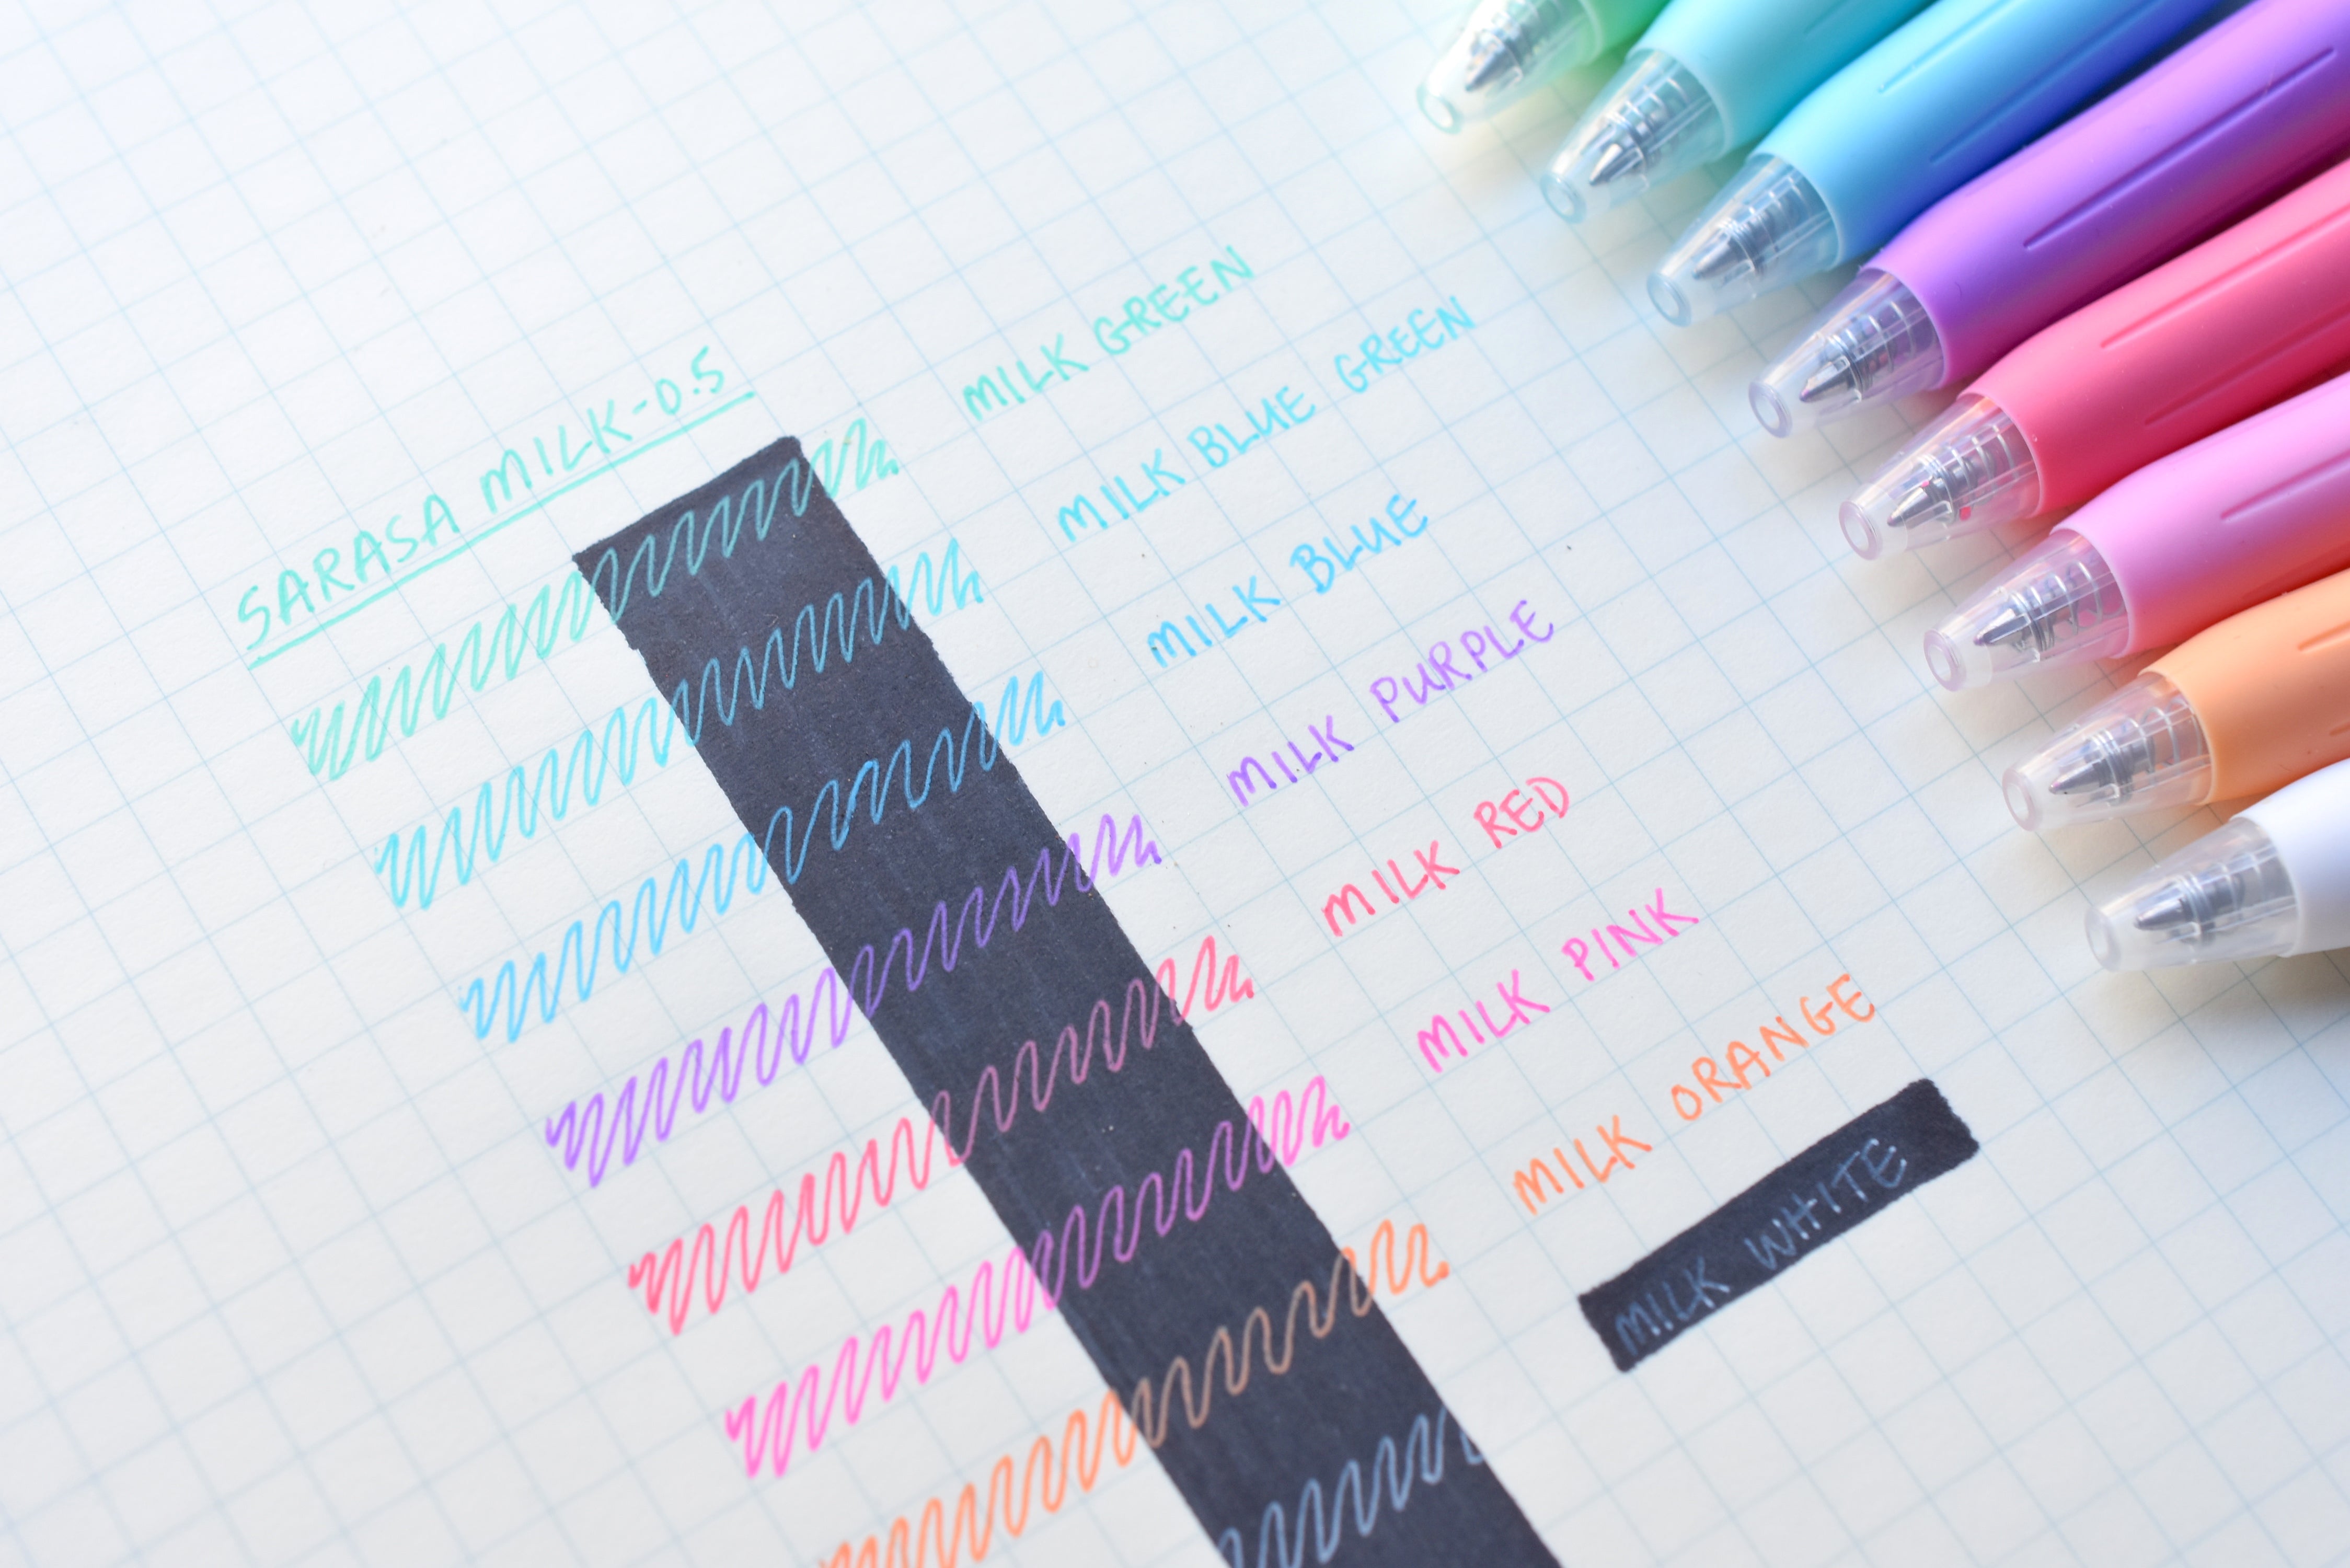 SARASA MILK-0.5
MILK GREEN
MILK BLUE GREEN
MILK BLUE
MILK PURPLE
MILK RED
MILK PINK
MILK ORANGE
MILK WHITE